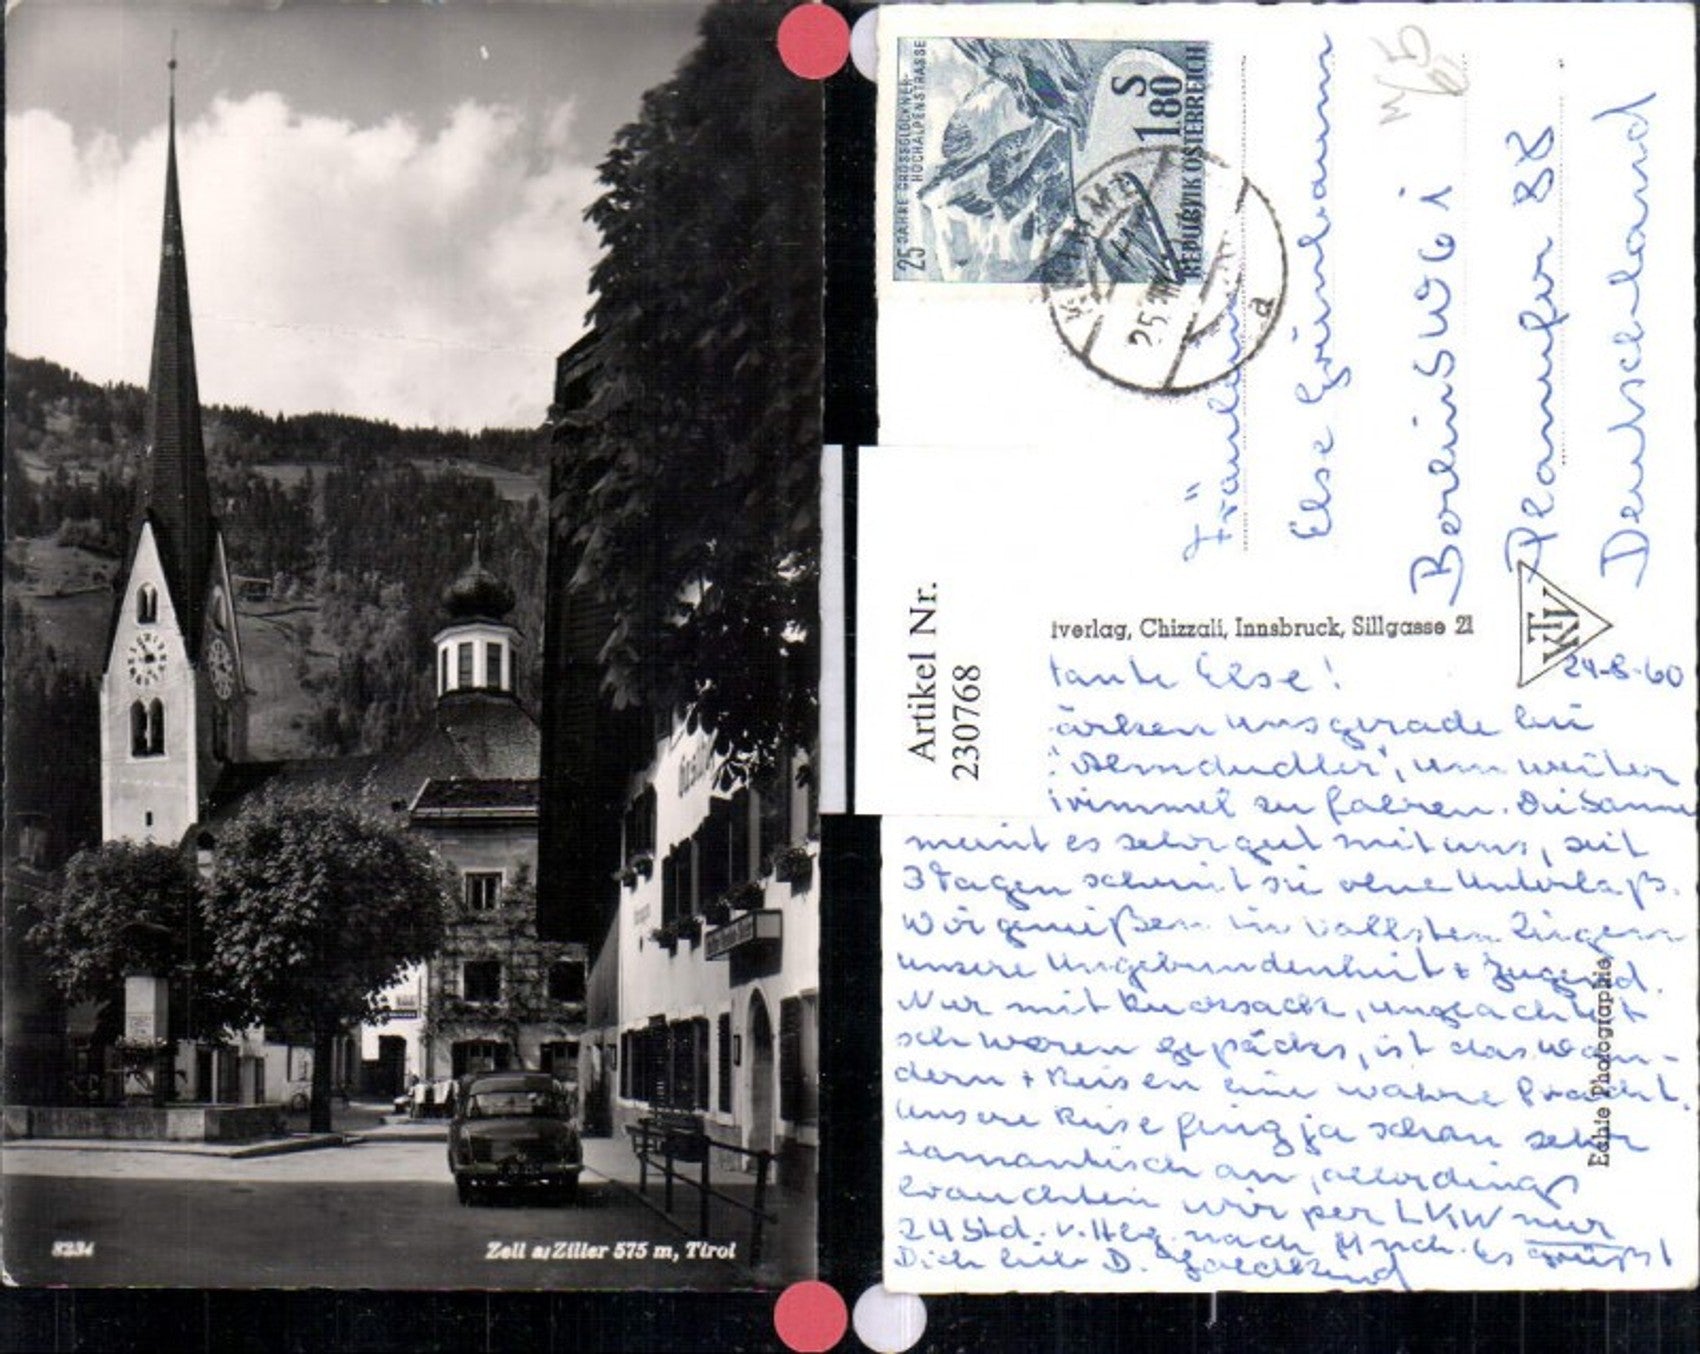 Gasthof
8234
Zell a/Ziller 575 m, Tirol
25 JAHRE GROSSGLOCKNER-
HOCHALPENSTRASSE
S
1.80
REPUBLIK ÖSTERREICH
25.
a
Fräulein
Else Grünbaum
Berlin SW 61
Planufer 88
Deutschland
Artikel Nr.
230768
iverlag, Chizzali, Innsbruck, Sillgasse 21
KTV
24-8-60
tante Else!
ärken uns gerade bei
"Almdudler", um weiter
immel zu fahren. Die Sonne
meint es sehr gut mit uns, seit
3 Tagen scheint sie ohne Unterlaß.
Wir genießen in vollsten Zügen
unsere Ungebundenheit + Jugend.
Nur mit Rucksack, ungeachtet
schweren gepäcks, ist das Wan-
dern + Reisen eine wahre Pracht.
Unsere Reise fing ja schon sehr
romantisch an, allerdings
brauchten wir per LKW nur
24 Std. v. Hbg. nach Mnch. Es grüßt
Dich liebe D.
Echte Photographie